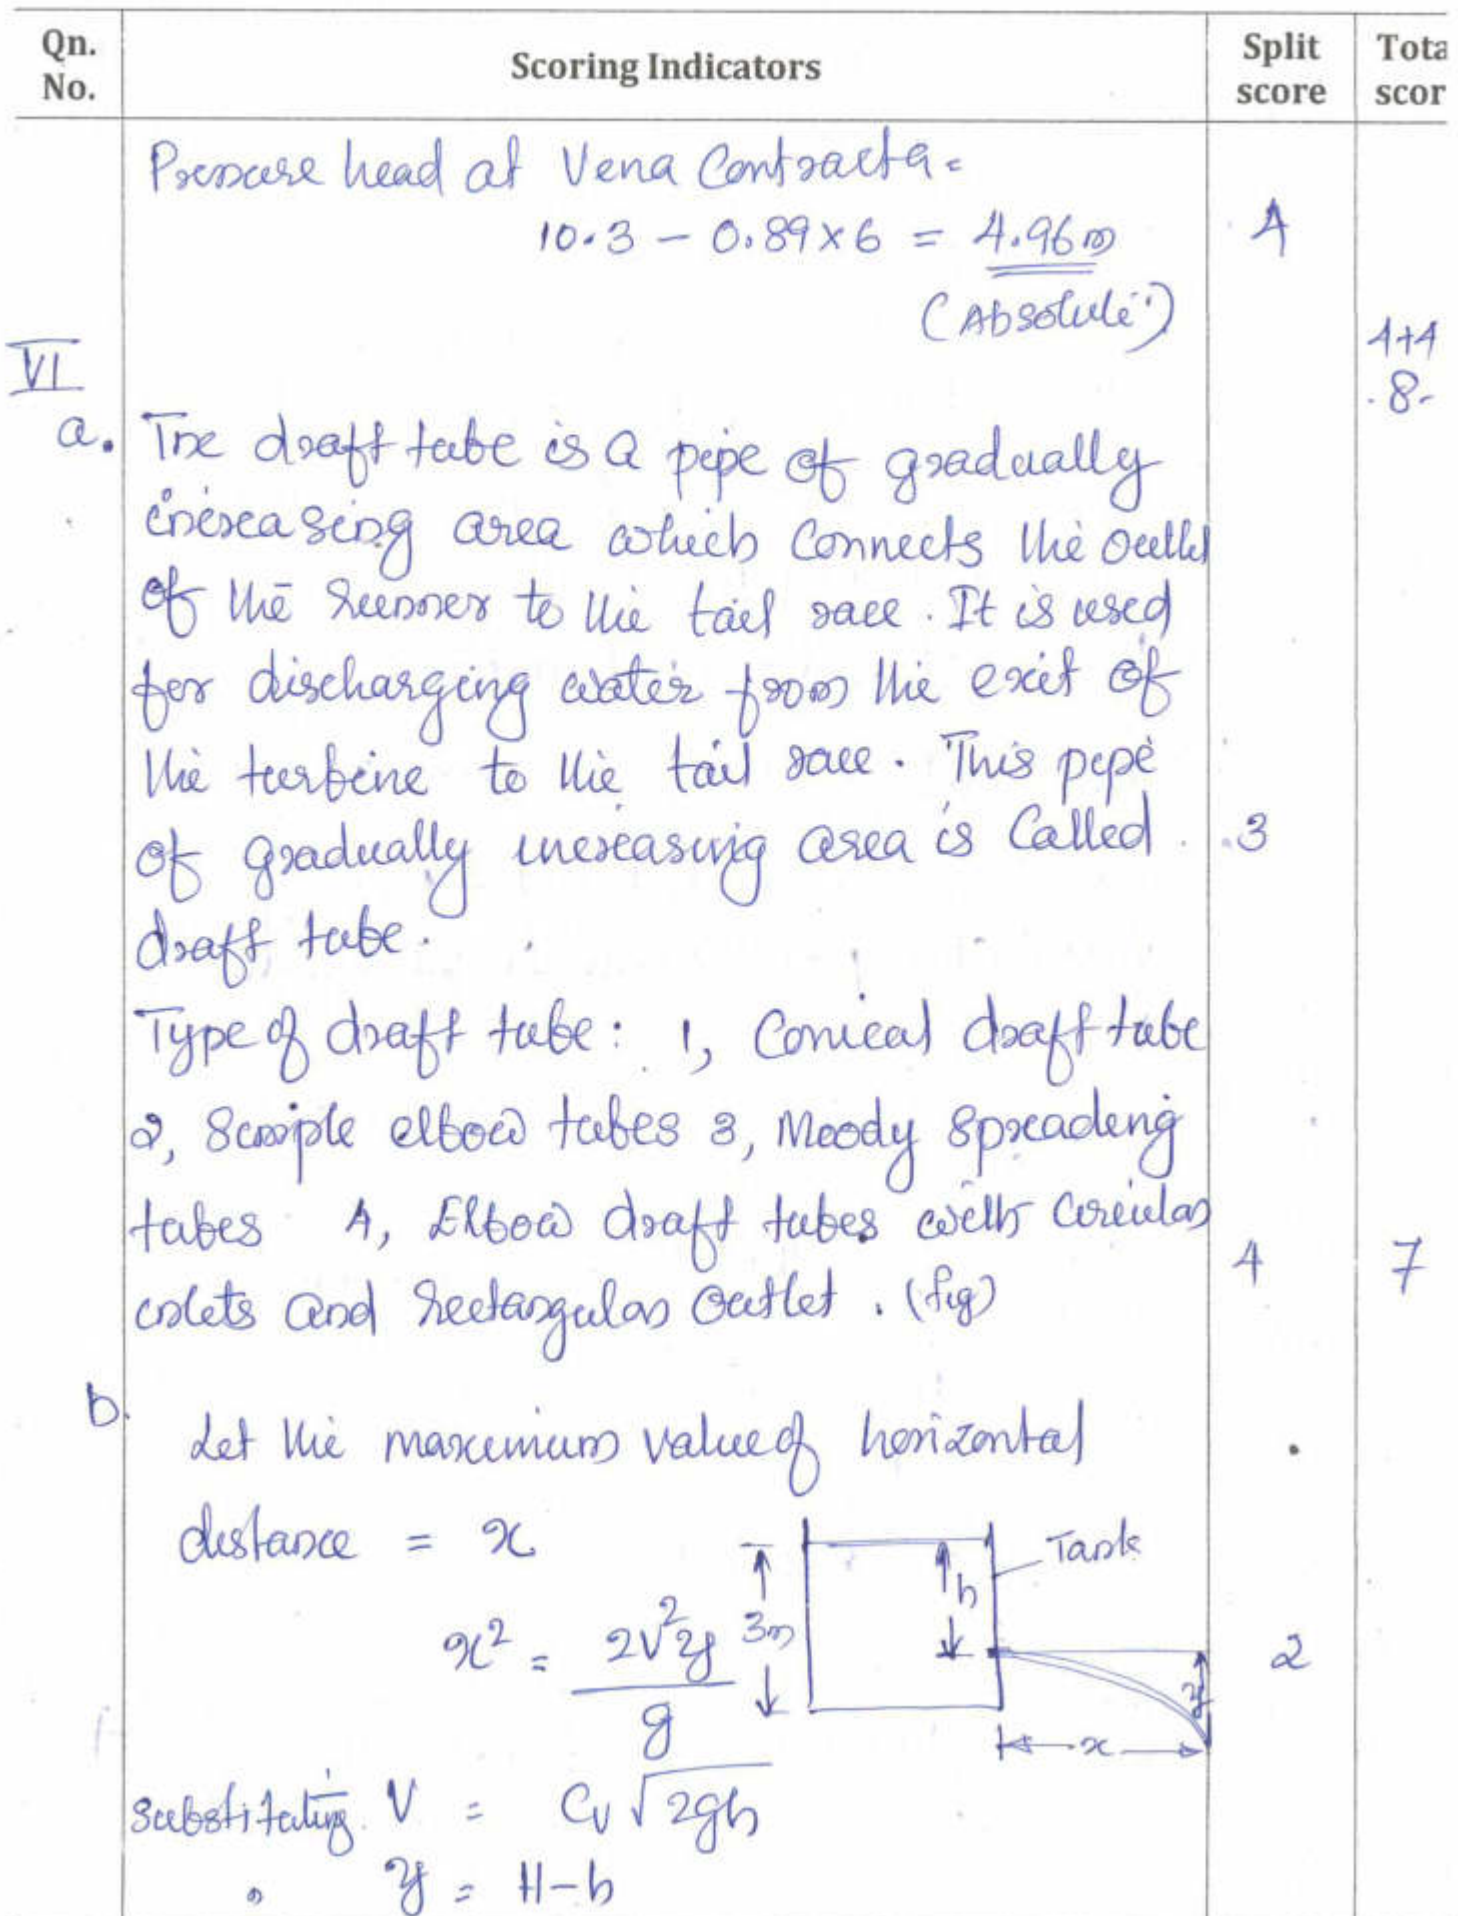 Qn. No.
Scoring Indicators
Split score
Tota scor
Pressure head at Vena Contracta =
10.3 - 0.89 x 6 = 4.96m
4
(Absolute)
4+4
8
VI
a. The draft tube is a pipe of gradually
increasing area which connects the outlet
of the runner to the tail race. It is used
for discharging water from the exit of
the turbine to the tail race. This pipe
of gradually increasing area is called
3
draft tube.
Type of draft tube: 1, Conical draft tube
2, Simple elbow tubes 3, Moody spreading
tubes 4, Elbow draft tubes with circular
inlets and rectangular outlet. (fig)
4
7
b. Let the maximum value of horizontal
distance = x
Tank
h
3m
x² = 2V²y / g
2
y
x
substituting V = Cv √2gh
" y = H-h